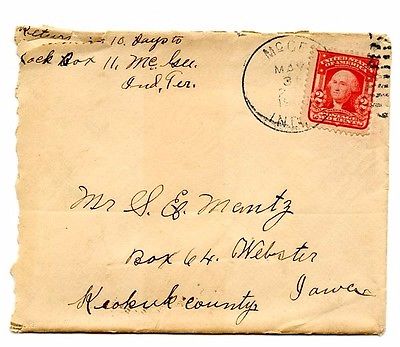 Return in 10 Days to
Lock Box 11, McGee
Ind, Ter.
MCGEE
MAY
IND.
UNITED STATES
OF AMERICA
2 2
CENTS
Mr S. E. Mantz
Box 64. Webster
Keokuk County, Iowa